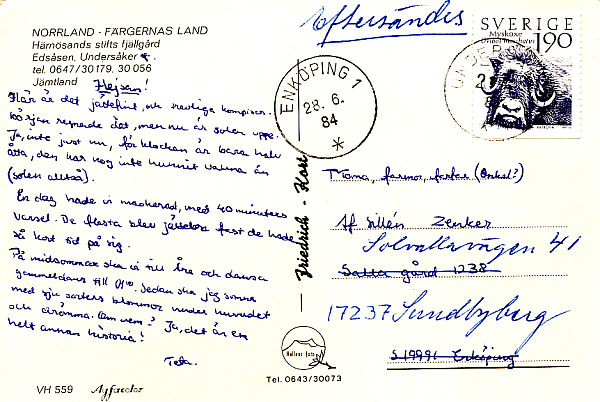 NORRLAND - FÄRGERNAS LAND
Härnösands stifts fjällgård
Edsåsen, Undersåker
tel. 0647/30179, 30 056
Jämtland
Hejsan!
Här är det jättefint, och trevliga kompisar. I
början regnade det, men nu är solen uppe.
Ja, inte just nu, för klockan är bara halv
åtta, den har nog inte hunnit vakna än
(solen alltså).
En dag hade vi maskerad, med 40 minuters
varsel. De flesta blev jättebra fast de hade
så kort tid på sig.
På midsommar ska vi till Åre och dansa
gammeldans till 01⁰⁰. Sedan ska jag somna
med sju sorters blommor under huvudet
och drömma. Om vem? Ja, det är en
helt annan historia!
VH 559 Agfacolor
Friedrich - Kort
Tel. 0643/30073
Eftersändes
SVERIGE
Myskoxe
1.90
ENKÖPING 1
28. 6.
84
Mona, farmor, farfar (Onkel?)
Af Sillén Zenker
Solvallavägen 41
Salta gård 1238
17237 Sundbyberg
S 19991 Enköping